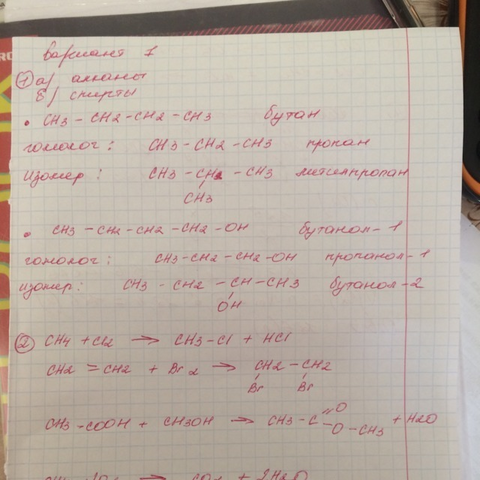 Вариант 1
① а) алканы
б) спирты
• CH3 - CH2 - CH2 - CH3 бутан
гомолог: CH3 - CH2 - CH3 пропан
изомер: CH3 - CH - CH3 метилпропан
CH3
• CH3 - CH2 - CH2 - CH2 - OH бутанол-1
гомолог: CH3 - CH2 - CH2 - OH пропанол-1
изомер: CH3 - CH2 - CH - CH3 бутанол-2
OH
② CH4 + Cl2 → CH3 - Cl + HCl
CH2 = CH2 + Br2 → CH2 - CH2
Br Br
CH3 - COOH + CH3OH → CH3 - C =O - O - CH3 + H2O